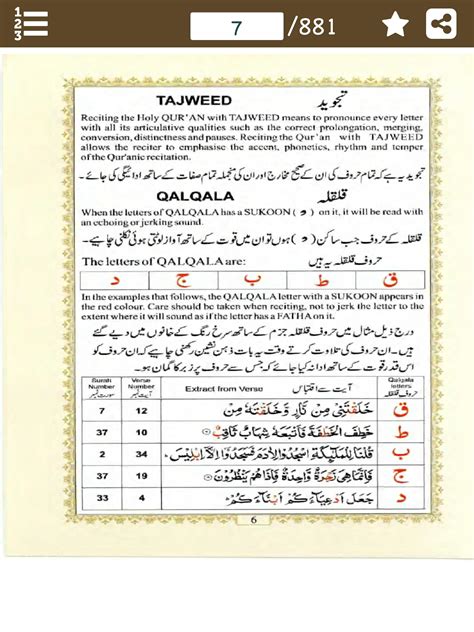 1
2
3
7 /881
TAJWEED تجوید
Reciting the Holy QUR'AN with TAJWEED means to pronounce every letter
with all its articulative qualities such as the correct prolongation, merging,
conversion, distinctness and pauses. Reciting the Qur'an with TAJWEED
allows the reciter to emphasise the accent, phonetics, rhythm and temper
of the Qur'anic recitation.
تجوید یہ ہے کہ تمام حروف کی ان کے صحیح مخارج اور ان کی جملہ تمام صفات کے ساتھ ادائیگی کی جائے۔
QALQALA قلقلہ
When the letters of QALQALA has a SUKOON ( ) on it, it will be read with
an echoing or jerking sound.
قلقلہ کے حروف جب ساکن ( ) ہوں تو ان میں قوت کے ساتھ آواز لوٹتی ہوئی نکلنی چاہیے۔
The letters of QALQALA are: حروف قلقلہ یہ ہیں
ق ط ب ج د
In the examples that follows, the QALQALA letter with a SUKOON appears in
the red colour. Care should be taken when reciting, not to jerk the letter to the
extent where it will sound as if the letter has a FATHA on it.
درج ذیل مثال میں حروف قلقلہ جزم کے ساتھ سرخ رنگ کے خانوں میں دیے گئے
ہیں۔ ان حروف کی تلاوت کرتے وقت یہ بات ذہن نشین رکھنی چاہیے کہ ان کو
اس قدر قوت کے ساتھ ادا نہیں کیا جائے کہ جس سے حروف پر زبر کا گمان ہو۔
Surah Number سورت نمبر Verse Number آیت نمبر Extract from Verse آیت سے اقتباس Qalqala letters حروف قلقلہ
7 12 خَلَقْتَنِي مِنْ نَّارٍ وَّخَلَقْتَهُ مِنْ ق
37 10 خَطِفَ الْخَطْفَةَ فَاَتْبَعَهُ شِهَابٌ ثَاقِبٌ ط
2 34 قُلْنَا لِلْمَلٰٓئِكَةِ اسْجُدُوْا لِاٰدَمَ فَسَجَدُوْٓا اِلَّآ اِبْلِيْسَ ب
37 19 فَاِنَّمَا هِيَ زَجْرَةٌ وَّاحِدَةٌ فَاِذَا هُمْ يَنْظُرُوْنَ ج
33 4 جَعَلَ اَدْعِيَآءَكُمْ اَبْنَآءَكُمْ د
6